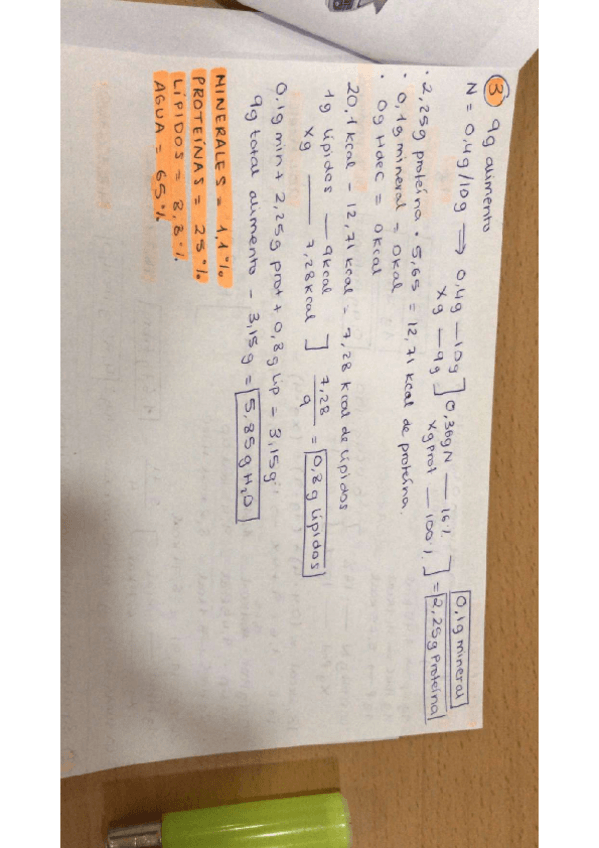 3 9g alimento
N = 0,4g/10g ⟹ 0,4g — 10g ] 0,36gN — 16% ] 0,1g mineral
xg — 9g xg Prot — 100% = 2,25g Proteína
· 2,25g proteína · 5,65 = 12,71 kcal de proteína.
· 0,1g mineral = 0kal
· 0g Hdec = 0kcal
20,1 kcal - 12,71 kcal = 7,28 kcal de lípidos
1g lípidos — 9kcal ] 7,28/9 = 0,8g lípidos
xg — 7,28kcal
0,1g min + 2,25g prot + 0,8g lip = 3,15g
9g total alimento - 3,15g = 5,85g H₂O
MINERALES = 1,1%
PROTEÍNAS = 25%
LÍPIDOS = 8,8%
AGUA = 65%